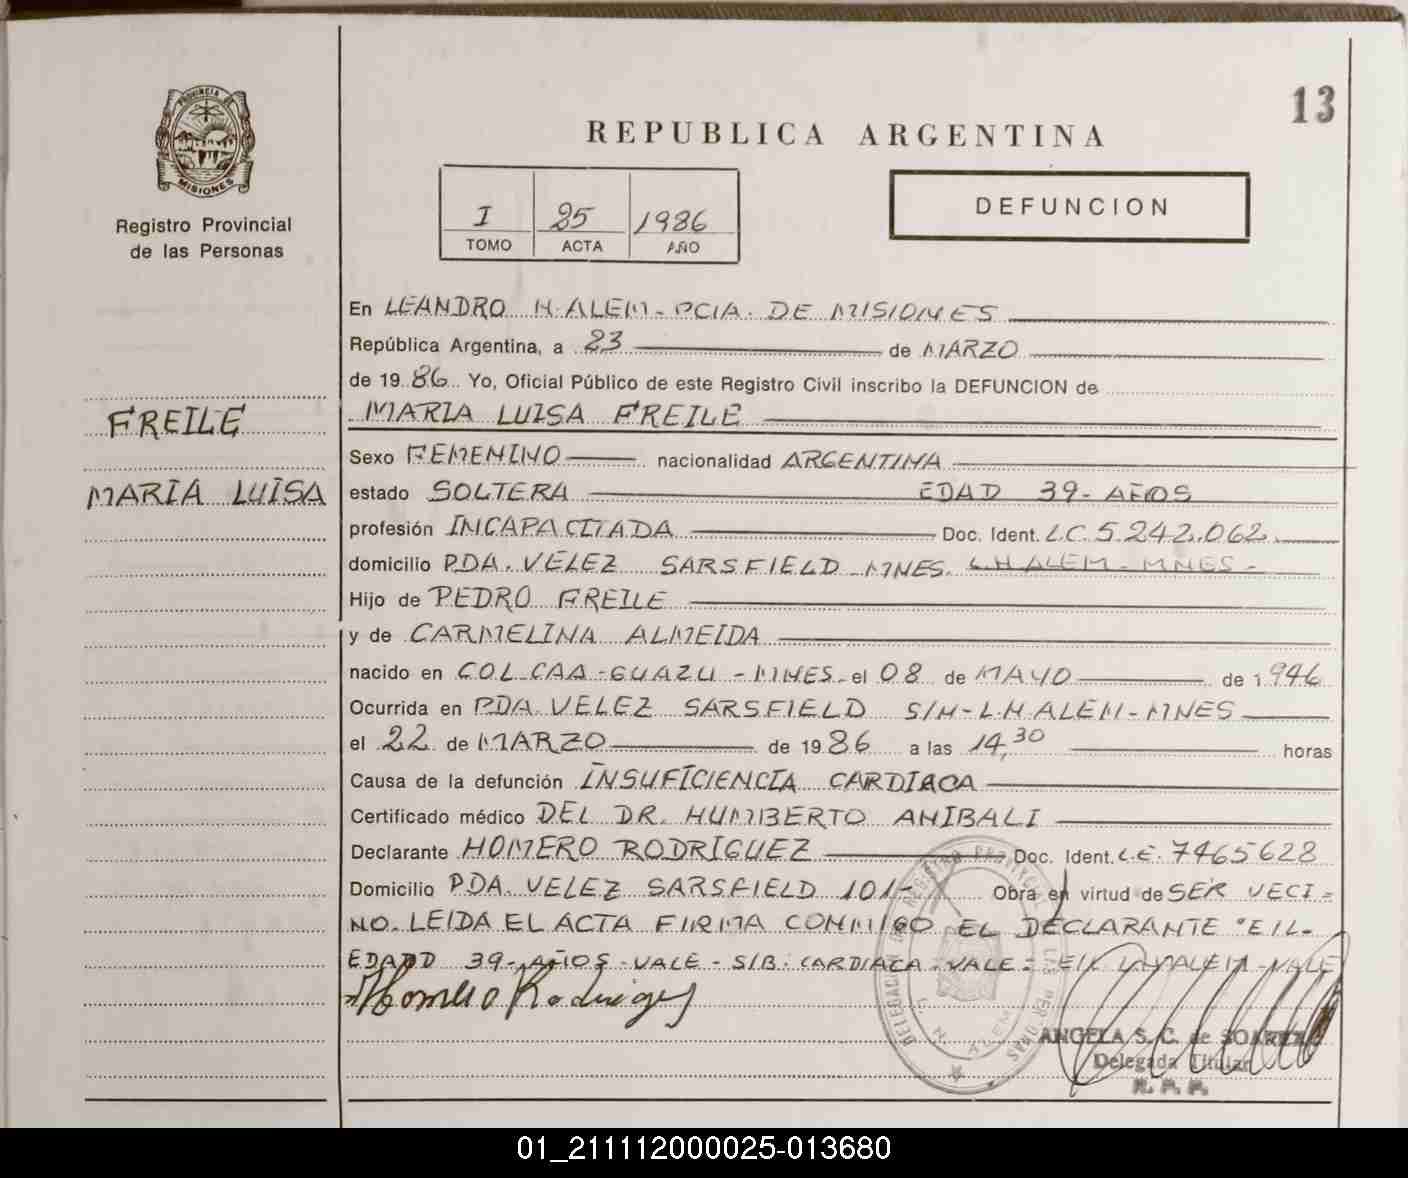 13
PROVINCIA DE
MISIONES
Registro Provincial
de las Personas
REPUBLICA ARGENTINA
I 25 1986
TOMO ACTA AÑO
DEFUNCION
FREILE
MARIA LUISA
En LEANDRO N. ALEM - PCIA. DE MISIONES
República Argentina, a 23 de MARZO
de 1986 Yo, Oficial Público de este Registro Civil inscribo la DEFUNCION de
MARIA LUISA FREILE
Sexo FEMENINO nacionalidad ARGENTINA
estado SOLTERA EDAD 39- AÑOS
profesión INCAPACITADA Doc. Ident. L.C. 5.242.062
domicilio PDA. VELEZ SARSFIELD - MNES. L.N. ALEM - MNES -
Hijo de PEDRO FREILE
y de CARMELINA ALMEIDA
nacido en COL. CAA-GUAZU - MNES - el 08 de MAYO de 1946
Ocurrida en PDA. VELEZ SARSFIELD S/N - L.N. ALEM - MNES
el 22 de MARZO de 1986 a las 14,30 horas
Causa de la defunción INSUFICIENCIA CARDIACA
Certificado médico DEL DR. HUMBERTO ANIBALI
Declarante HOMERO RODRIGUEZ Doc. Ident. L.E. 7465628
Domicilio PDA. VELEZ SARSFIELD 101- Obra en virtud de SER VECI=
NO. LEIDA EL ACTA FIRMA CONMIGO EL DECLARANTE "E/L-
EDAD 39- AÑOS - VALE - S/B: CARDIACA - VALE - E/L L.N. ALEM - VALE
Homero Rodriguez
DELEGACION DEL REGISTRO PROVINCIAL DE LAS PERSONAS
L. N. ALEM
ANGELA S. C. de SOAREZ
Delegada Titular
R. P. P.
01_211112000025-013680